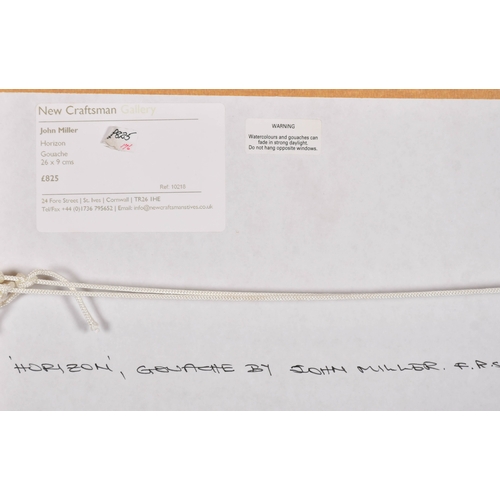 New Craftsman Gallery
John Miller
£825
Horizon
Gouache
26 x 9 cms
£825
Ref: 10218
24 Fore Street | St. Ives | Cornwall | TR26 1HE
Tel/Fax +44 (0)1736 795652 | Email: info@newcraftsmanstives.co.uk
WARNING
Watercolours and gouaches can
fade in strong daylight.
Do not hang opposite windows.
'HORIZON', GOUACHE BY JOHN MILLER. F.R.S